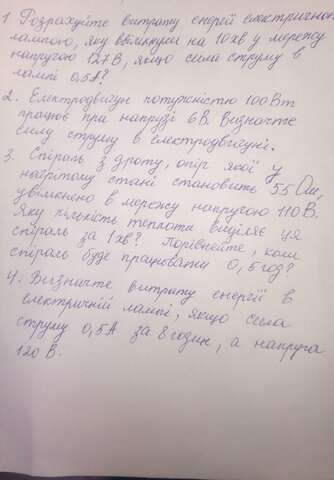 1. Розрахуйте витрату енергії електричною
лампою, яку ввімкнули на 10хв у мережу
напругою 127 В, якщо сила струму в
лампі 0,5А?
2. Електродвигун потужністю 100 Вт
працює при напрузі 6 В. Визначте
силу струму в електродвигуні.
3. Спіраль з дроту, опір якої у
нагрітому стані становить 55 Ом,
увімкнено в мережу напругою 110 В.
Яку кількість теплоти виділяє ця
спіраль за 1хв? Порівняйте, коли
спіраль буде працювати 0,5 год?
4. Визначте витрату енергії в
електричній лампі, якщо сила
струму 0,5А за 8 годин, а напруга
120 В.